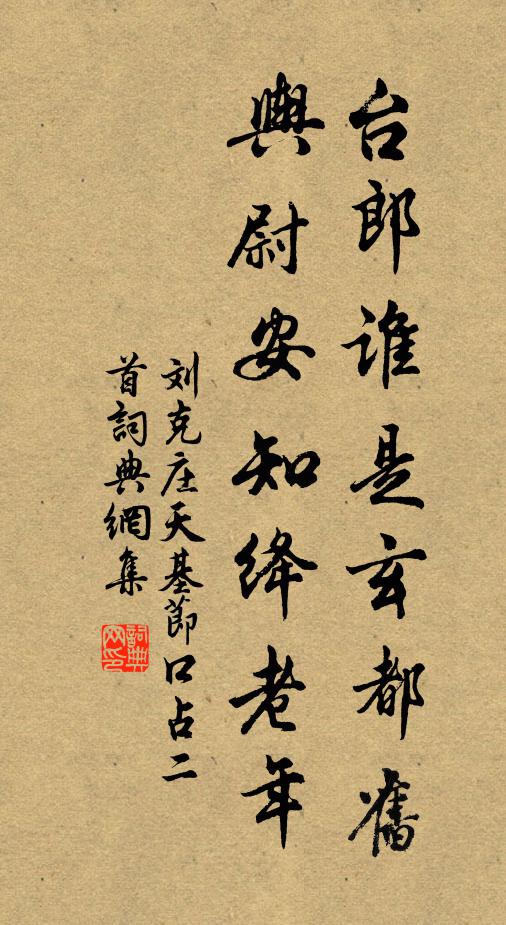 台郎谁是玄都舊
輿尉安知绛老年
刘克庄天基節口占二
首詞典網集
詞典
网印